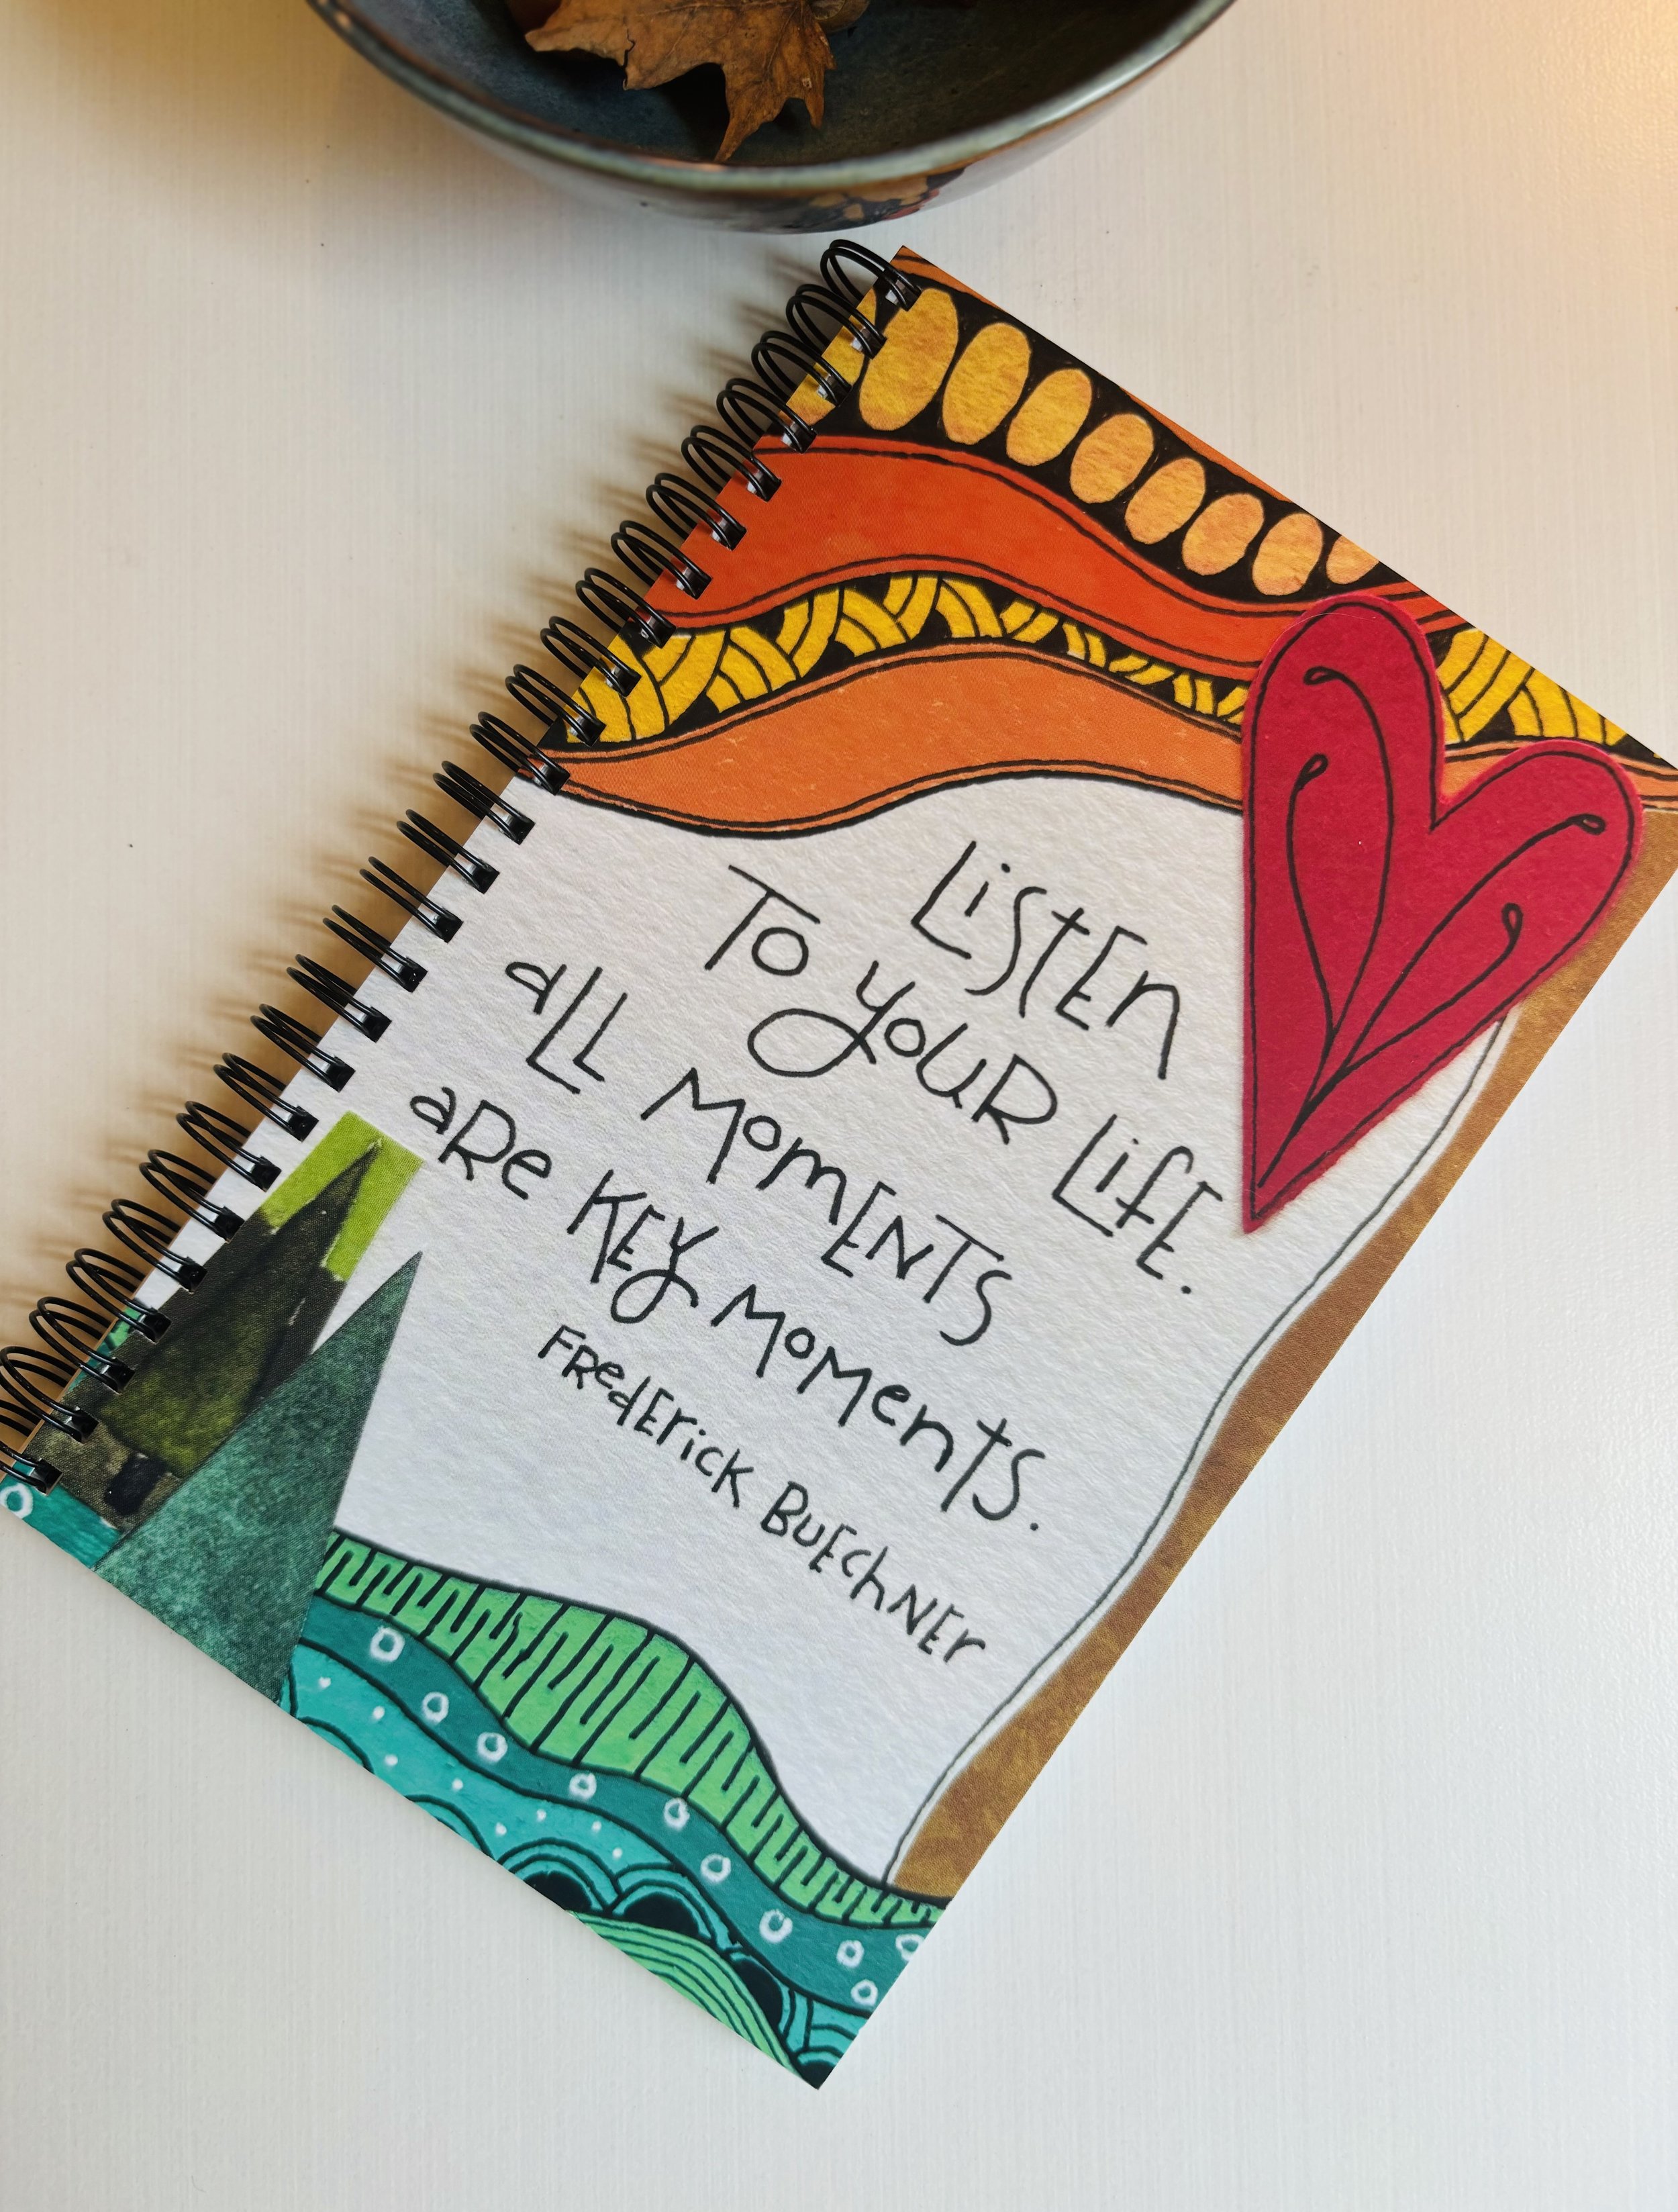 Listen
To your Life.
all moments
are key moments.
Frederick Buechner